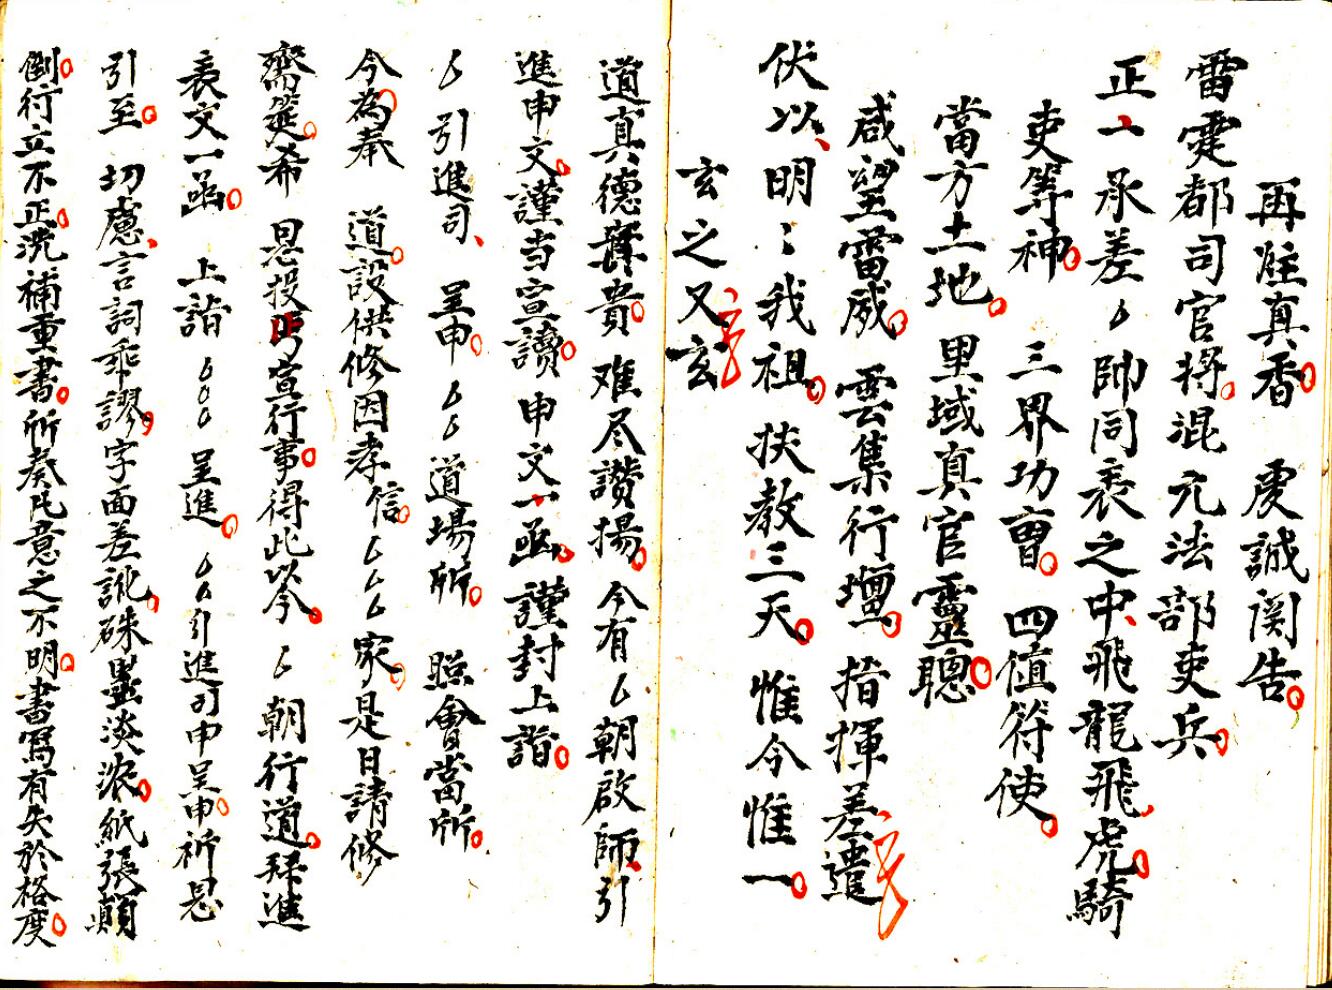 再炷真香。虔誠関告。
雷霆都司官将。混元法部吏兵。
正一承差〻帥同衰之中、飛龍飛虎。騎
吏等神。三界功曹。四値符使。
當方土地。里域真官靈聰。
咸望雷威。雲集行壇。指揮差遣
伏以、明〻我祖。扶教三天。惟今惟一。
玄之又玄
道真德奪貴。难尽讃揚。今有〻朝啟師、引
進申文。謹当宣讀。申文一函。謹封上詣。
〻引進司、呈申。〻〻道場所。照會當所。
今為奉道。設供修因孝信。〻〻〻家。是日請修
齋筵。希恩投 宣行事。得此以今。〻朝行道。拜進
表文一函。上詣〻〻〻呈進。〻〻引進司申呈申。祈恩
引至。切慮、言詞乖謬。字面差訛。硃墨淡浓。紙張顛
倒。行立不正。洗補重書。所奏凡意之不明。書寫有失於格度。